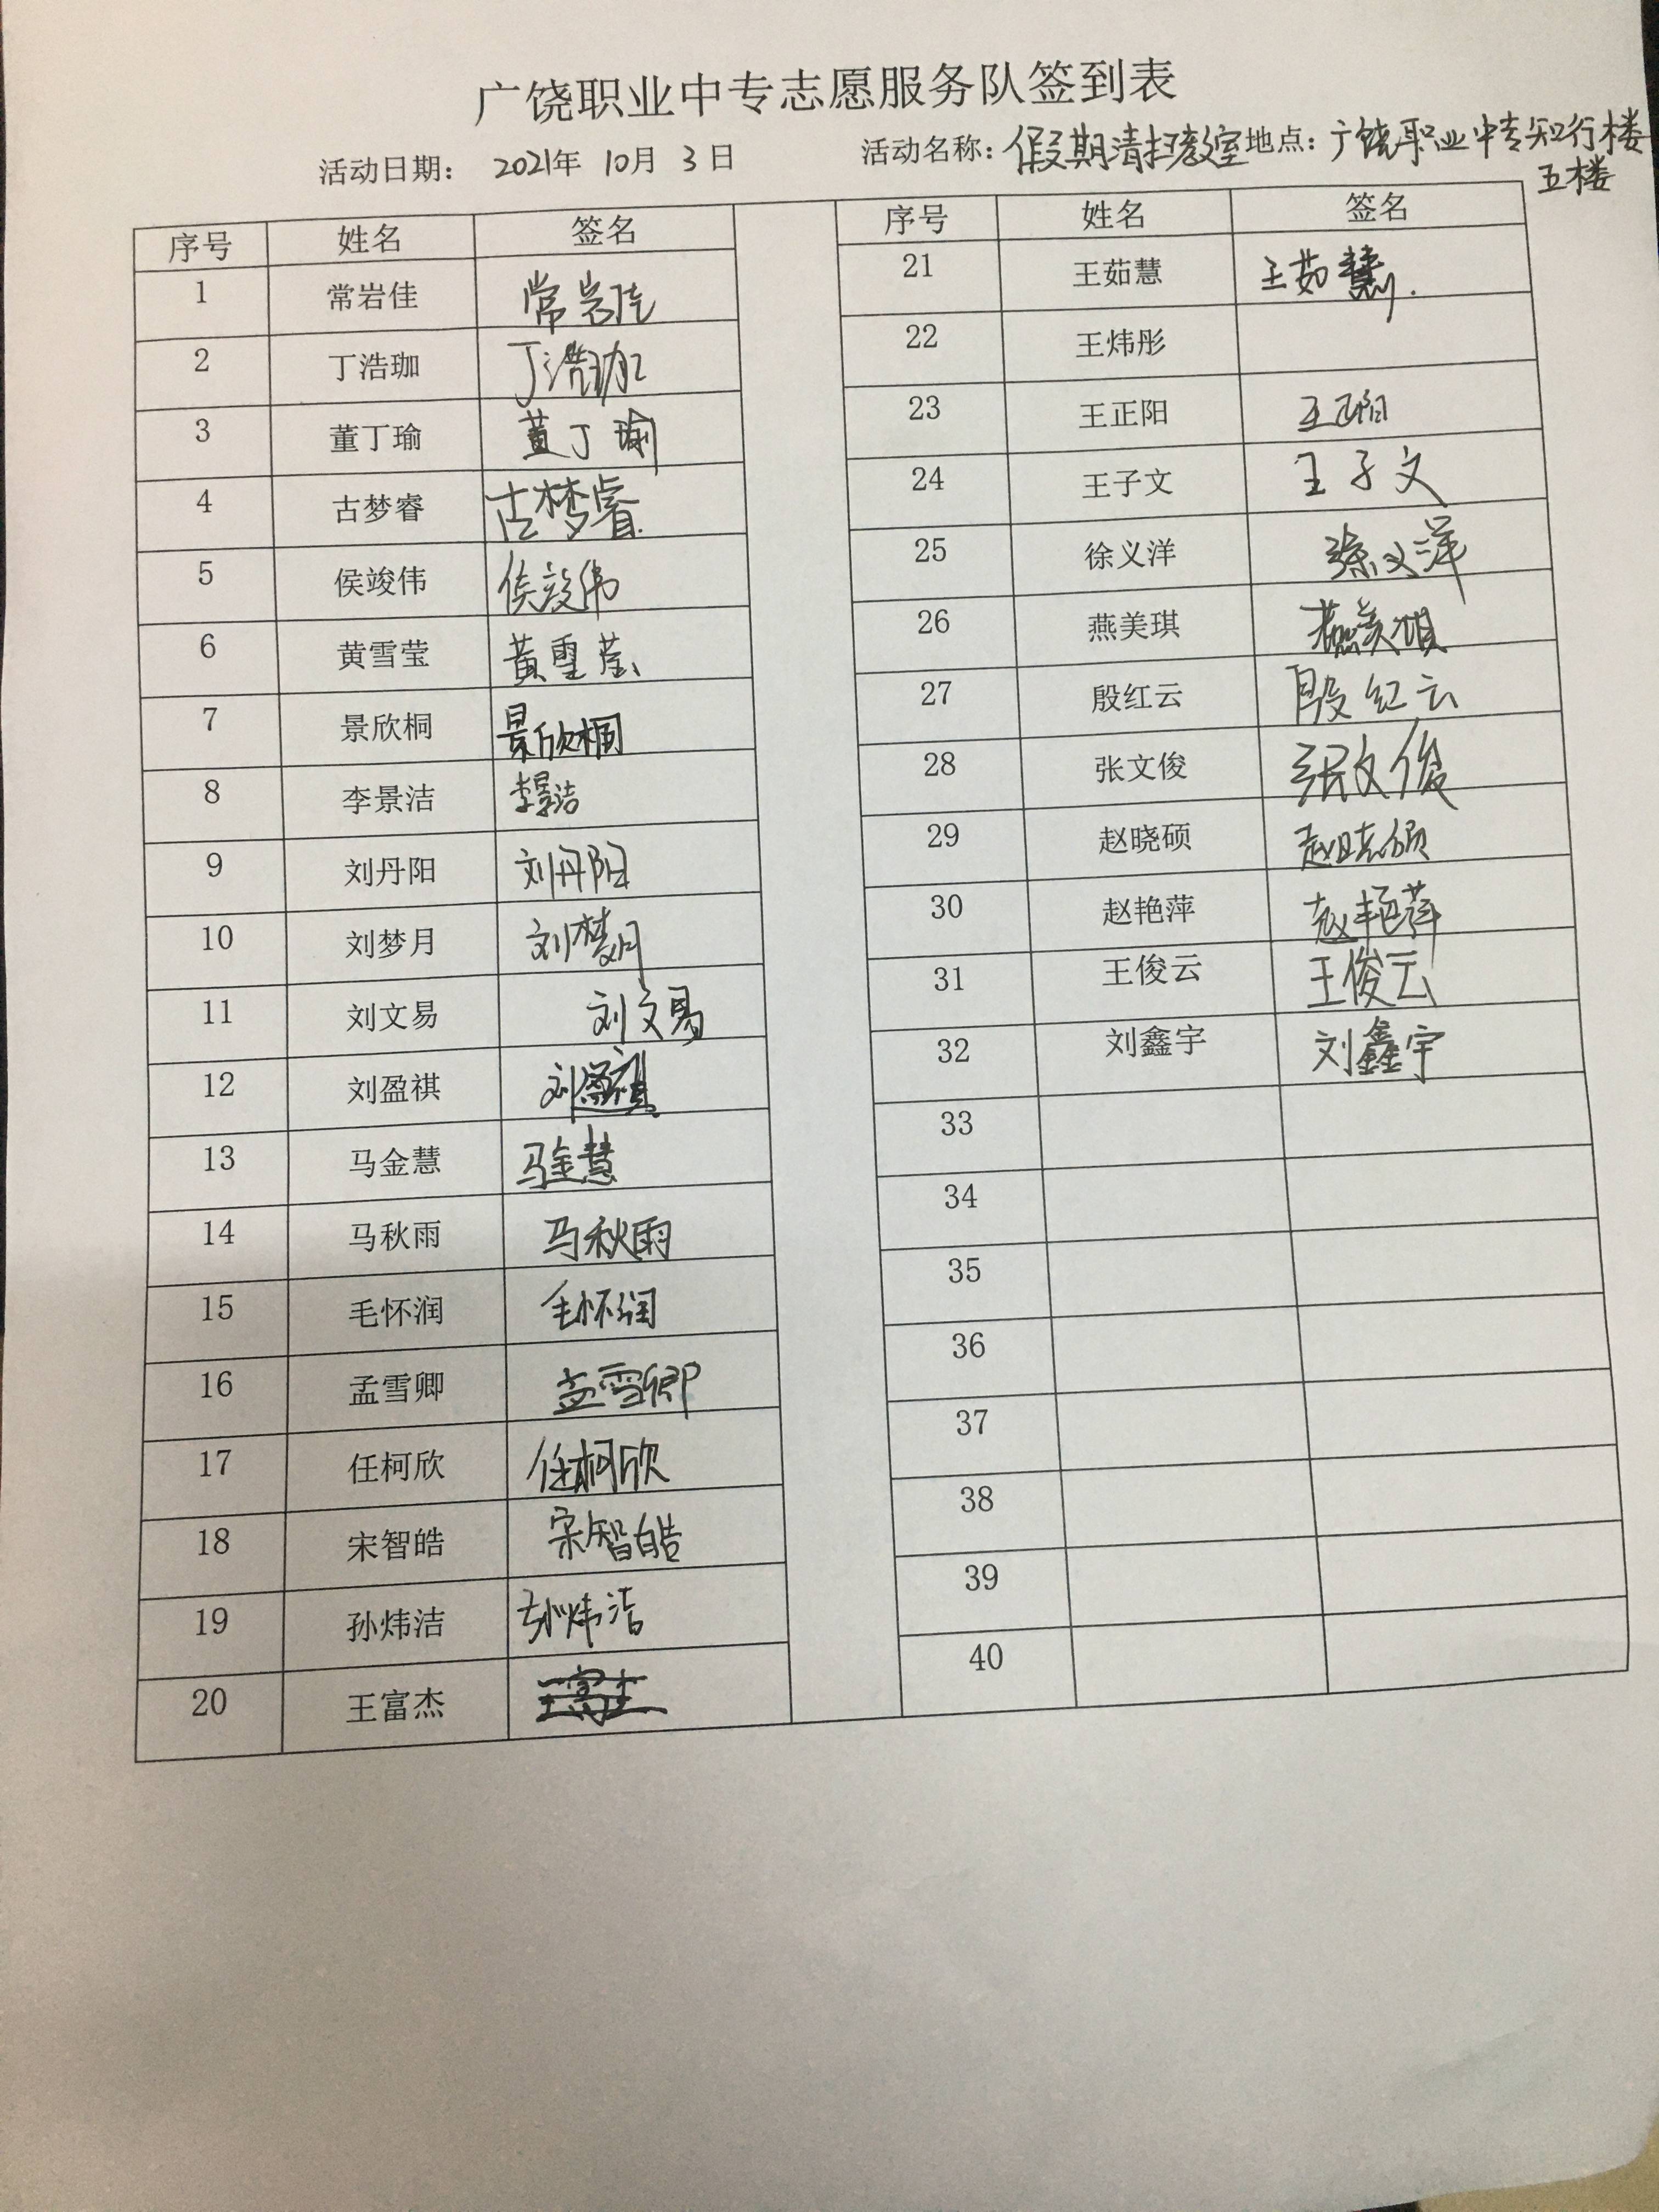 广饶职业中专志愿服务队签到表
活动日期: 2021年 10月 3日 活动名称:假期清扫教室 地点:广饶职业中专知行楼
五楼
序号 姓名 签名 序号 姓名 签名
1 常岩佳 常岩佳 21 王茹慧 王茹慧.
2 丁浩珈 丁浩珈 22 王炜彤
3 董丁瑜 董丁瑜 23 王正阳 王正阳
4 古梦睿 古梦睿. 24 王子文 王子文
5 侯竣伟 侯竣伟 25 徐义洋 徐义洋
6 黄雪莹 黄雪莹 26 燕美琪 燕美琪
7 景欣桐 景欣桐 27 殷红云 殷红云
8 李景洁 李景洁 28 张文俊 张文俊
9 刘丹阳 刘丹阳 29 赵晓硕 赵晓硕
10 刘梦月 刘梦月 30 赵艳萍 赵艳萍
11 刘文易 刘文易 31 王俊云 王俊云
12 刘盈祺 刘盈祺 32 刘鑫宇 刘鑫宇
13 马金慧 马金慧 33
14 马秋雨 马秋雨 34
15 毛怀润 毛怀润 35
16 孟雪卿 孟雪卿 36
17 任柯欣 任柯欣 37
18 宋智皓 宋智皓 38
19 孙炜洁 孙炜洁 39
20 王富杰 40